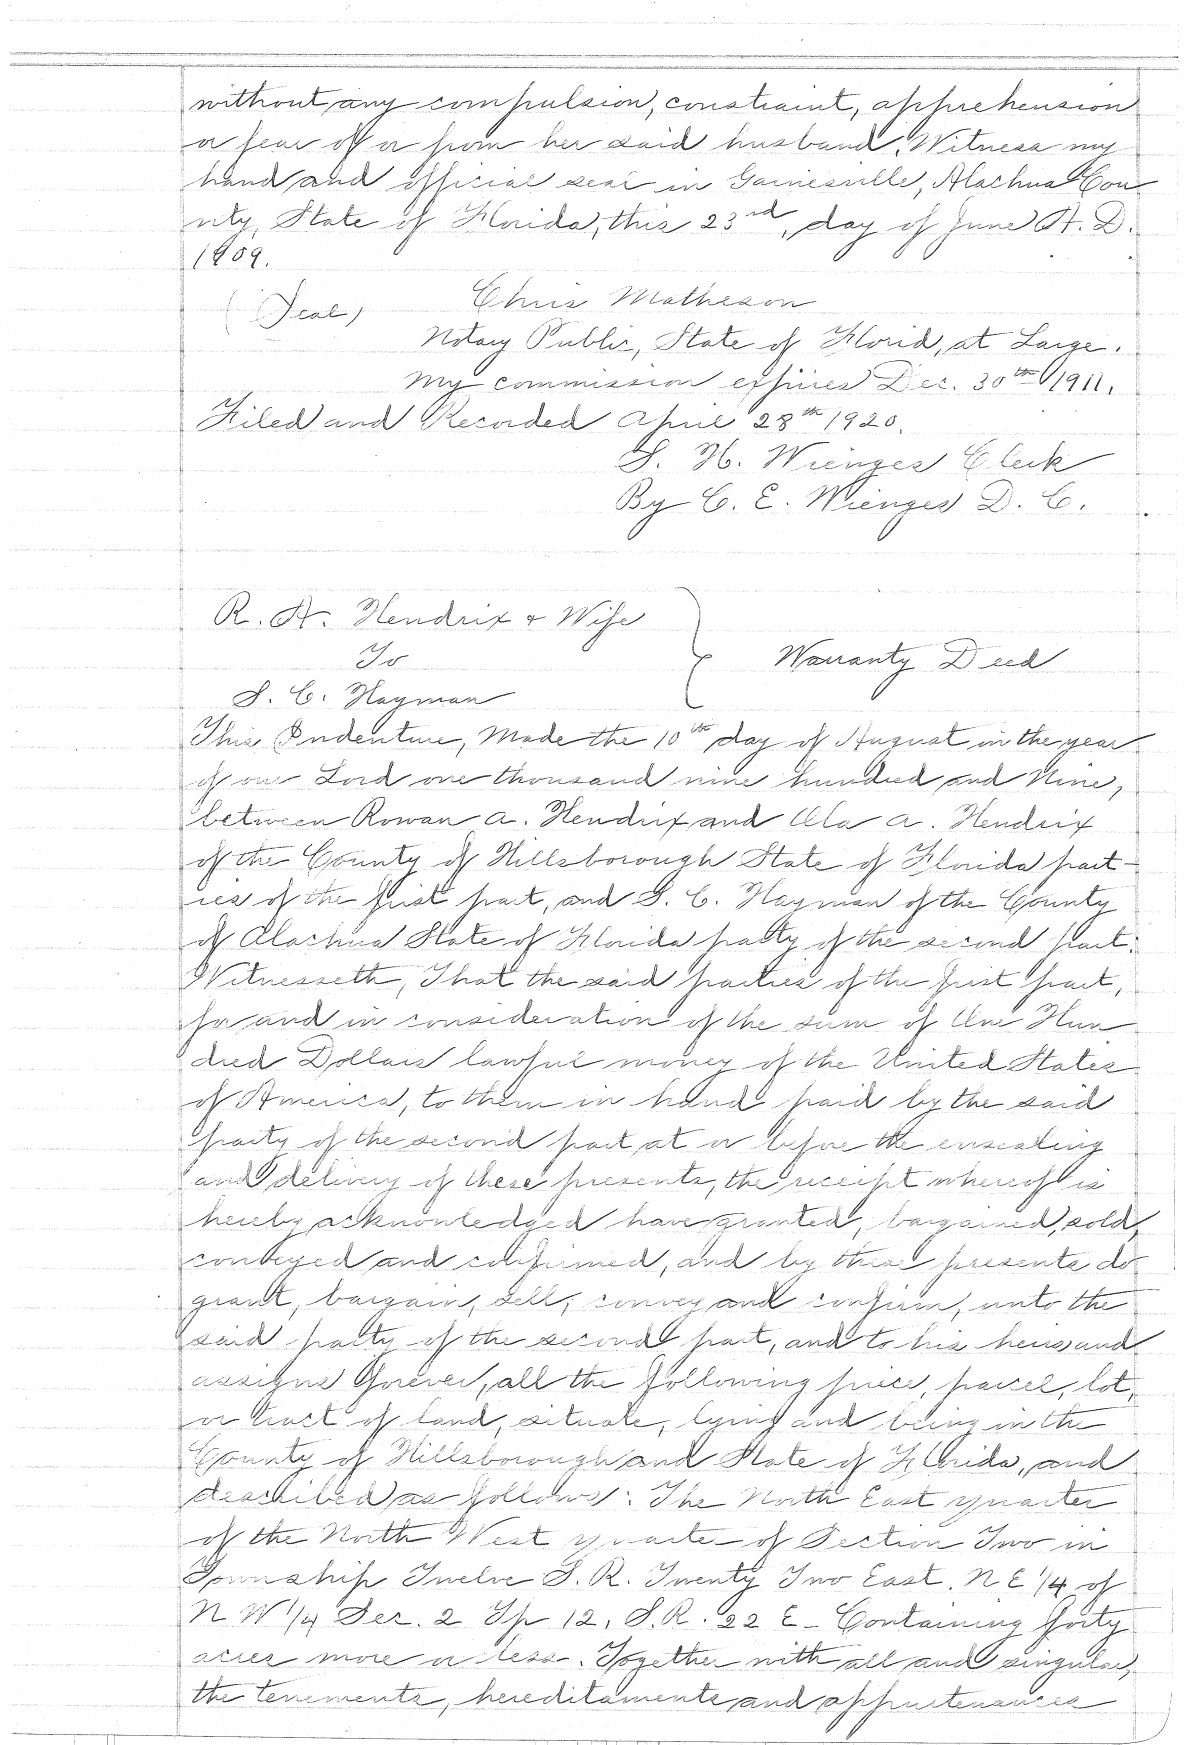 without any compulsion, constraint, apprehension
or fear of or from her said husband. Witness my
hand and official seal in Gainesville, Alachua Cou
nty, State of Florida, this 23rd, day of June A. D.
1909.
(Seal) Chris Matheson
Notary Public, State of Florid, at Large.
My commission expires Dec. 30th 1911.
Filed and Recorded April 28th 1920.
S. H. Wienges Clerk
By C. E. Wienges D. C.
R. A. Hendrix & Wife
To
Warranty Deed
S. C. Hayman
This Indenture, Made the 10th day of August in the year
of our Lord one thousand nine hundred and Nine,
between Rowan A. Hendrix and Ola A. Hendrix
of the County of Hillsborough State of Florida part-
ies of the first part, and S. C. Hayman of the County
of Alachua State of Florida party of the second part:
Witnesseth, That the said parties of the first part,
for and in consideration of the sum of One Hun
dred Dollars lawful money of the United States
of America, to them in hand paid by the said
party of the second part at or before the ensealing
and delivery of these presents, the receipt whereof is
hereby acknowledged have granted, bargained, sold,
conveyed and confirmed, and by these presents do
grant, bargain, sell, convey and confirm, unto the
said party of the second part, and to his heirs and
assigns forever, all the following piece, parcel, lot,
or tract of land, situate, lying and being in the
County of Hillsborough and State of Florida, and
described as follows: The North East quarter
of the North West quarter of Section Two in
Township Twelve S. R. Twenty Two East. N E 1/4 of
N W 1/4 Sec. 2 Tp 12, S. R. 22 E - Containing forty
acres more or less. Together with all and singular,
the tenements, hereditaments and appurtenances